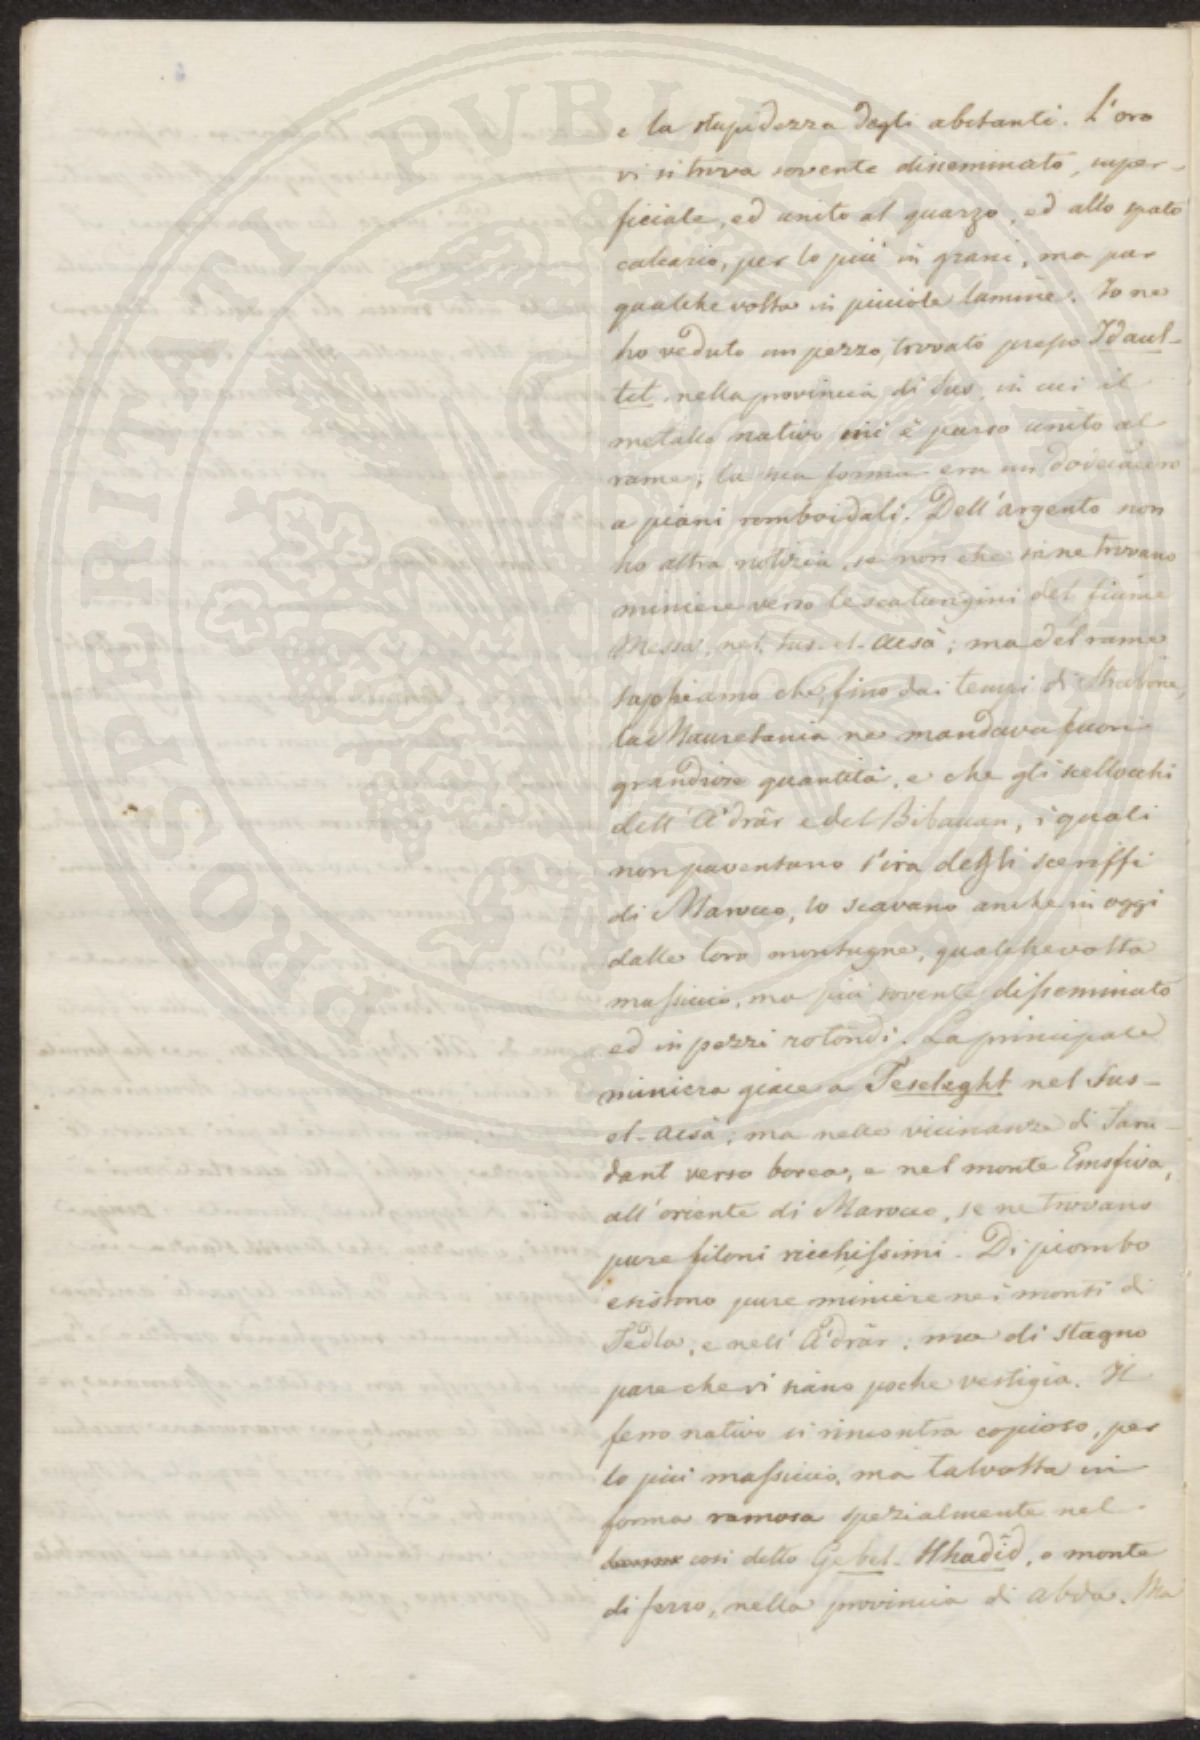 PROSPERITATI PUBLICAE
e la stupidezza degli abitanti. L'oro
vi si trova sovente disseminato, super-
ficiale, ed unito al quarzo, ed allo spato
calcario, per lo più in grani, ma pur
qualche volta in picciole lamine. Io ne
ho veduto un pezzo, trovato presso Idaul-
tit, nella provincia di Sus, in cui il
metallo nativo mi è parso unito al
rame; la sua forma era un dodecaedro
a piani romboidali. Dell'argento non
ho altra notizia, se non che se ne trovano
miniere verso le scaturigini del fiume
Messa, nel Sus-el-acsà; ma del rame
sappiamo che, fino dai tempi di Strabone,
la Mauretania ne mandava fuori
grandiose quantità, e che gli scellocchi
dell'A'drâr e del Bibauan, i quali
non paventano l'ira degli sceriffi
di Marocco, lo scavano anche in oggi
dalle loro montagne, qualche volta
massiccio, ma più sovente disseminato
ed in pezzi rotondi. La principale
miniera giace a Teseleght nel Sus-
el-acsà; ma nelle vicinanze di Taru-
dant verso borea, e nel monte
all'oriente di Marocco, se ne trovano
pure filoni ricchissimi. Di piombo
esistono pure miniere nei monti di
Tedla, e nell'A'drâr; ma di stagno
pare che vi siano poche vestigia. Il
ferro nativo si rincontra copioso, per
lo più massiccio, ma talvolta in
forma ramosa spezialmente nel
così detto Gebel-Hhadîd, o monte
di ferro, nella provincia di Abda. Ma